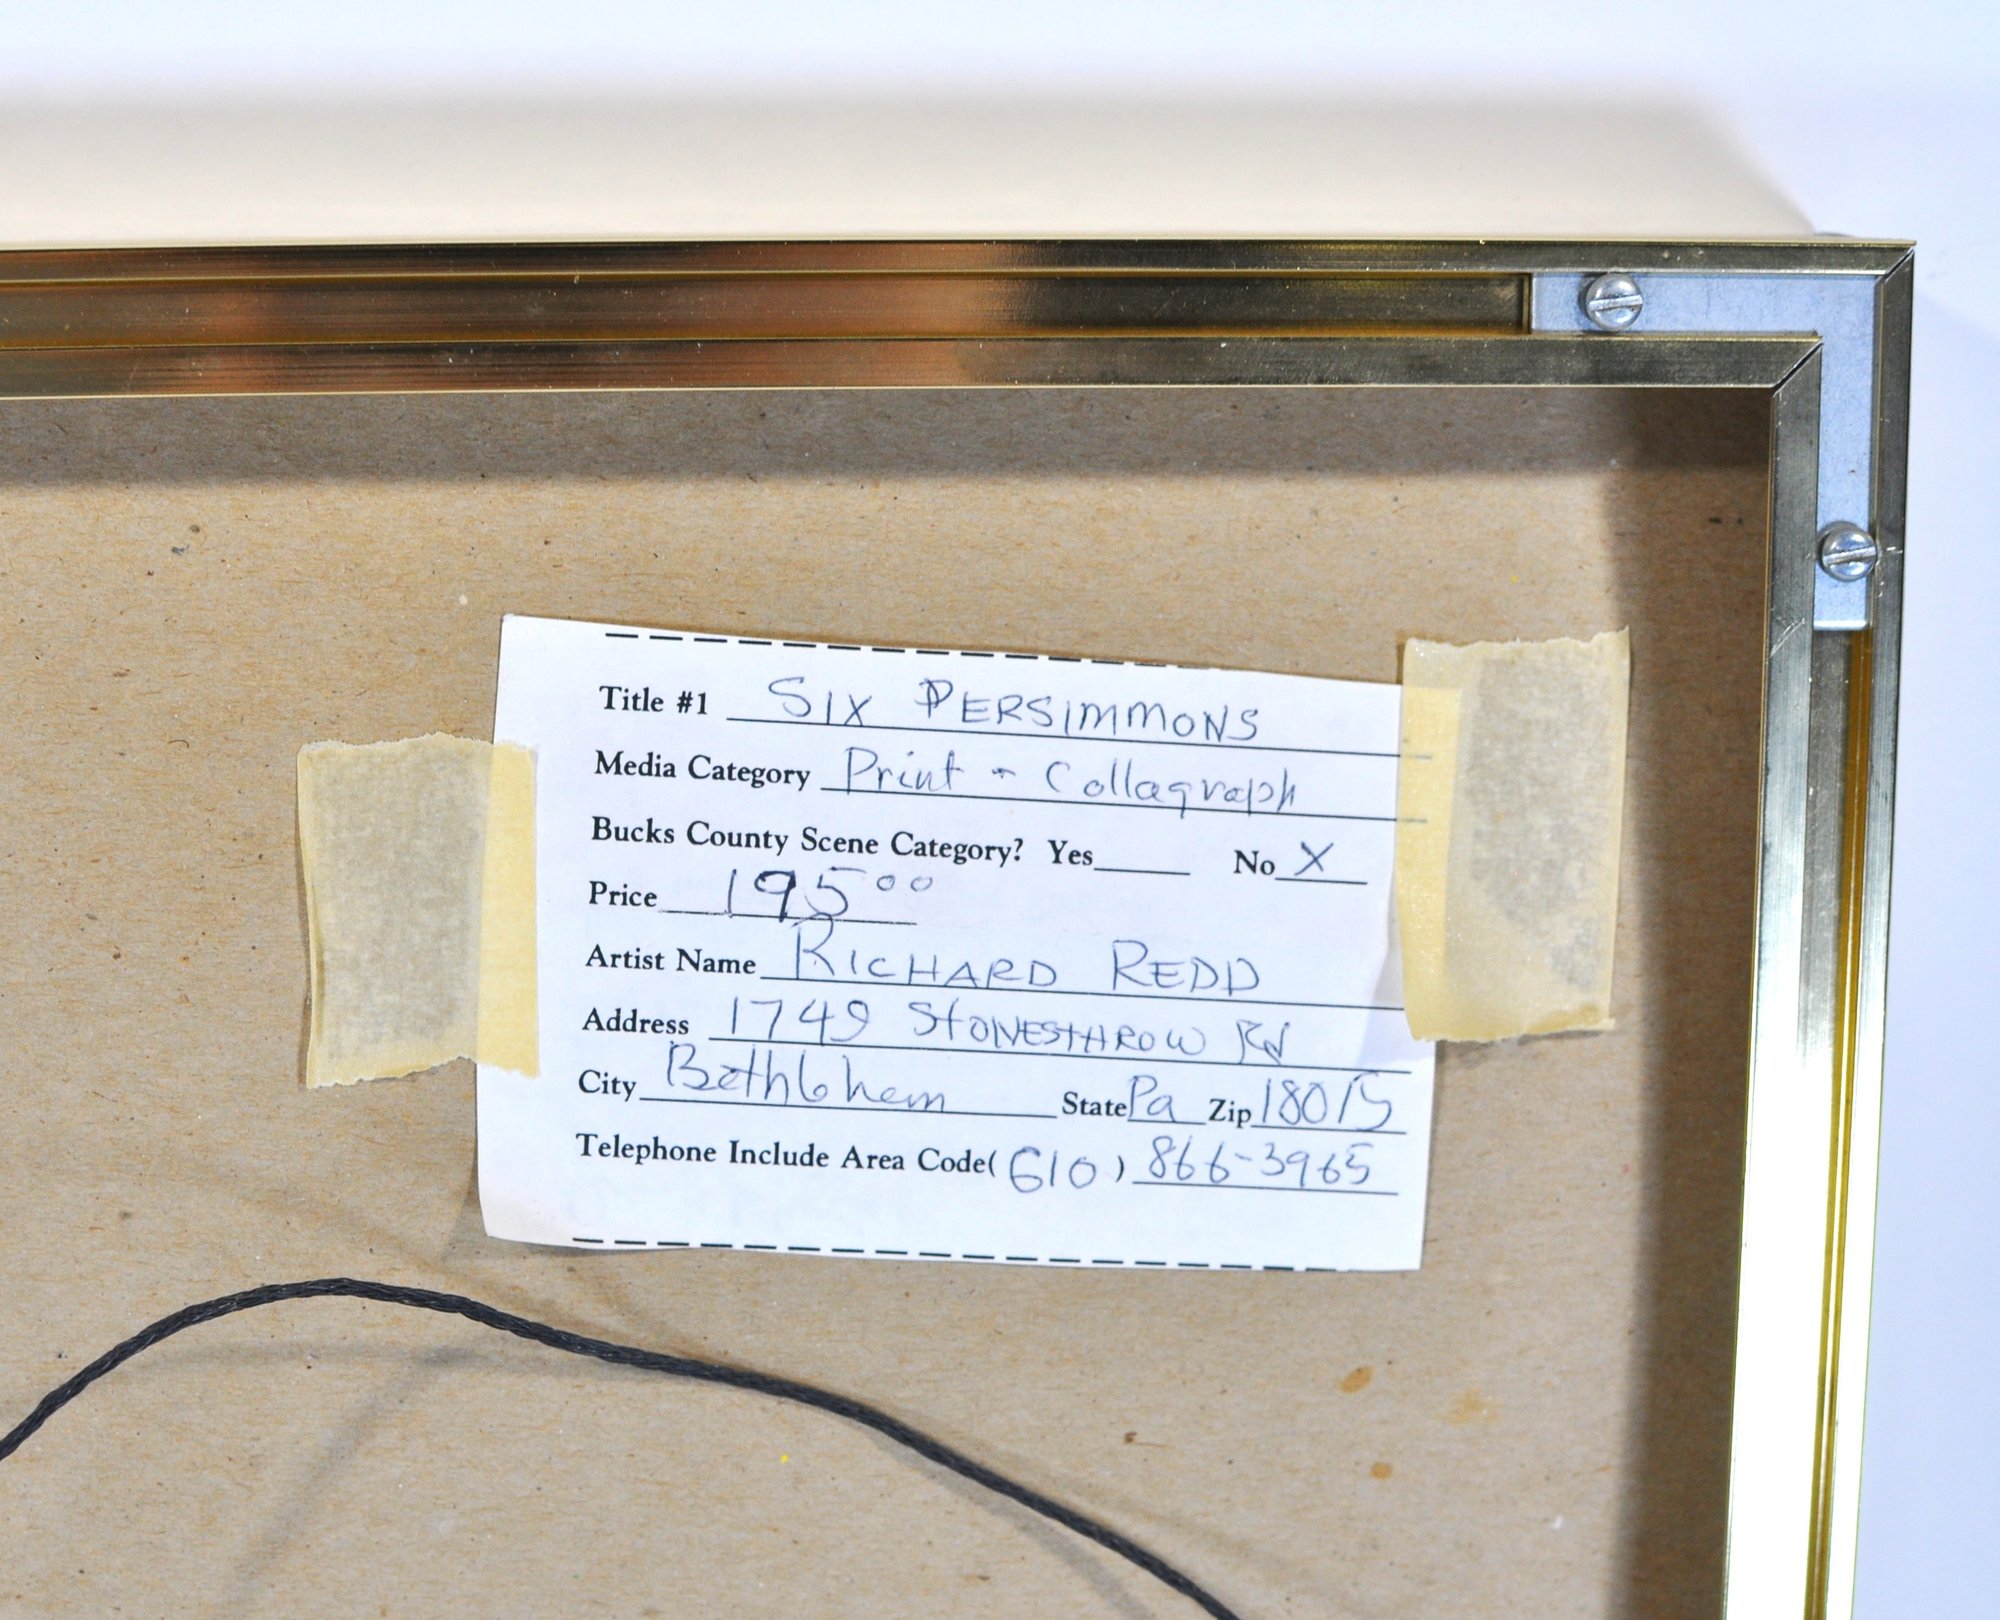 Title #1 SIX PERSIMMONS
Media Category Print - Collagraph
Bucks County Scene Category? Yes____ No X
Price 195⁰⁰
Artist Name RICHARD REDD
Address 1749 STONESTHROW Rd
City Bethlehem State Pa Zip 18015
Telephone Include Area Code (610) 866-3965